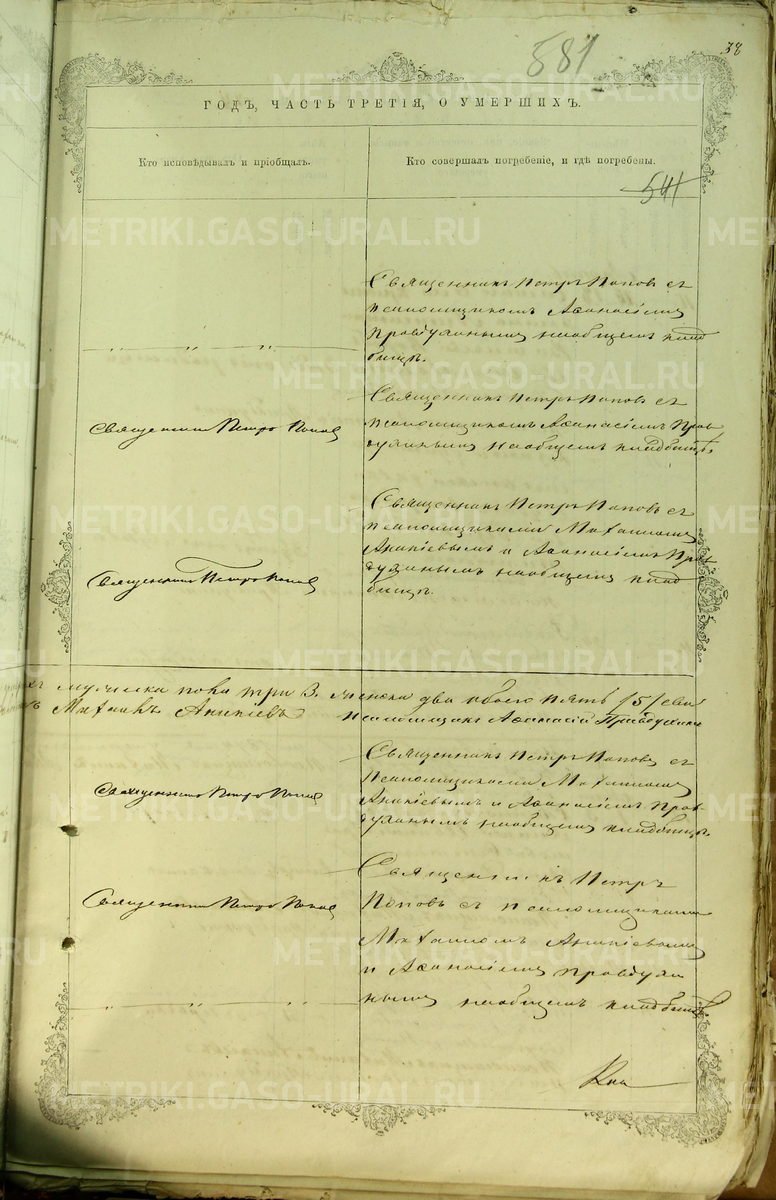 38
581
ГОДЪ, ЧАСТЬ ТРЕТІЯ, О УМЕРШИХЪ.
Кто исповѣдывалъ и пріобщалъ.
Кто совершалъ погребеніе, и гдѣ погребены.
541
Священникъ Петръ Поповъ съ
псаломщикомъ Аѳанасіемъ
Правдухинымъ на общемъ клад
бищѣ.
„ „ „
Священникъ Петръ Поповъ съ
псаломщикомъ Аѳанасіемъ Прав
духинымъ на общемъ кладбищѣ.
Священникъ Петръ Поповъ
Священникъ Петръ Поповъ съ
псаломщиками Михаиломъ
Ананіевымъ и Аѳанасіемъ Прав
духинымъ на общемъ клад
бищѣ.
Священникъ Петръ Поповъ
мужеска пола три 3. женска два обоего пять /5/
Михаилъ Ананіевъ псаломщикъ Аѳанасій Правдухинъ
Священникъ Петръ Поповъ съ
псаломщиками Михаиломъ
Ананіевымъ и Аѳанасіемъ Прав
духинымъ на общемъ кладбищѣ.
Священникъ Петръ Поповъ
Священникъ Петръ
Поповъ съ псаломщиками
Михаиломъ Ананіевымъ
и Аѳанасіемъ Правдухи
нымъ на общемъ кладбищѣ
Священникъ Петръ Поповъ
„ „ „
METRIKI.GASO-URAL.RU